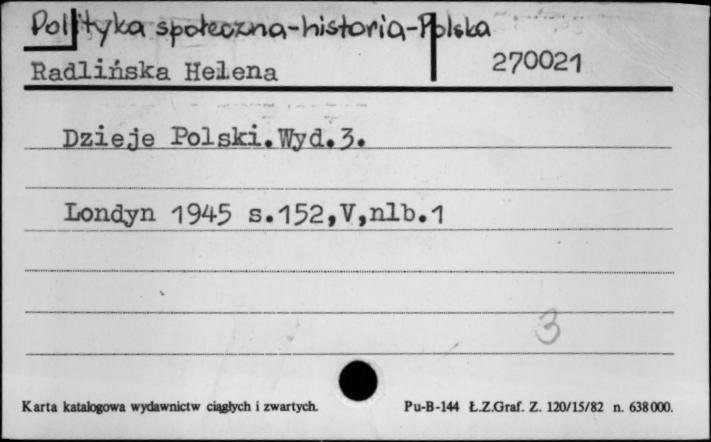 Polityka społeczna-historia-Polska
Radlińska Helena 270021
Dzieje Polski.Wyd.3.
Londyn 1945 s.152,V,nlb.1
3
Karta katalogowa wydawnictw ciągłych i zwartych. Pu-B-144 Ł.Z.Graf. Z. 120/15/82 n. 638000.